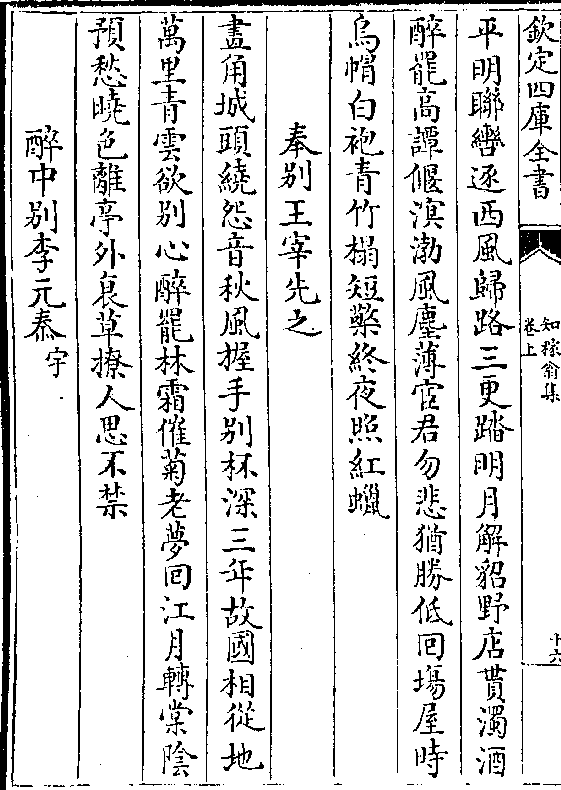 欽定四庫全書
知稼翁集
卷上
十六
平明聯轡逐西風歸路三更踏明月解貂野店貰濁酒
醉罷高譚偃溟渤風塵薄宦君勿悲猶勝低回場屋時
烏㡌白袍青竹榻短檠終夜照紅蠟
奉别王宰先之
畫角城頭繞怨音秋風握手别杯深三年故國相從地
萬里青雲欲别心醉罷林霜催菊老夢回江月轉棠陰
預愁曉色離亭外衰草撩人思不禁
醉中别李元泰宇